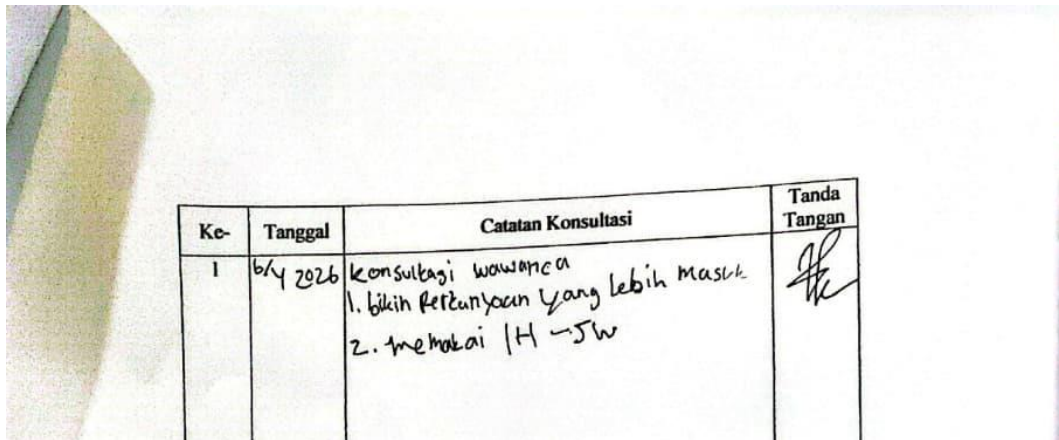 Ke- Tanggal Catatan Konsultasi Tanda Tangan
1 6/4 2026 konsultagi wawanca
1. bikin Pertanyaan yang lebih masuk
2. memakai 1H - 5W